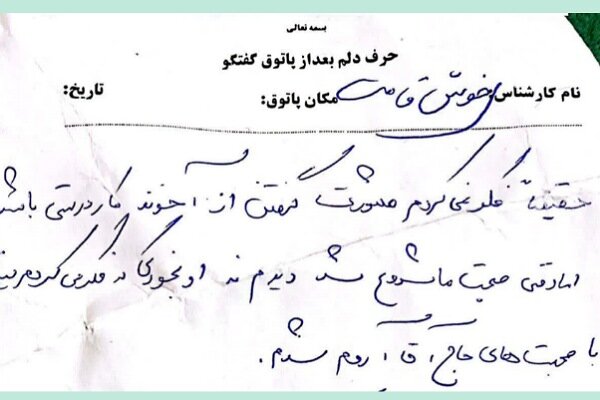 بسمه تعالی
حرف دلم بعد از پاتوق گفتگو
نام کارشناس: خوش قامت مکان پاتوق: تاریخ:
حقیقتاً فکر نمی‌کردم مشورت گرفتن از آخوند کار درستی باشد
اما وقتی صحبت ما شروع شد دیدم نه اونجوری که فکر می‌کردم
با صحبت‌های حاج آقا آروم شدم.